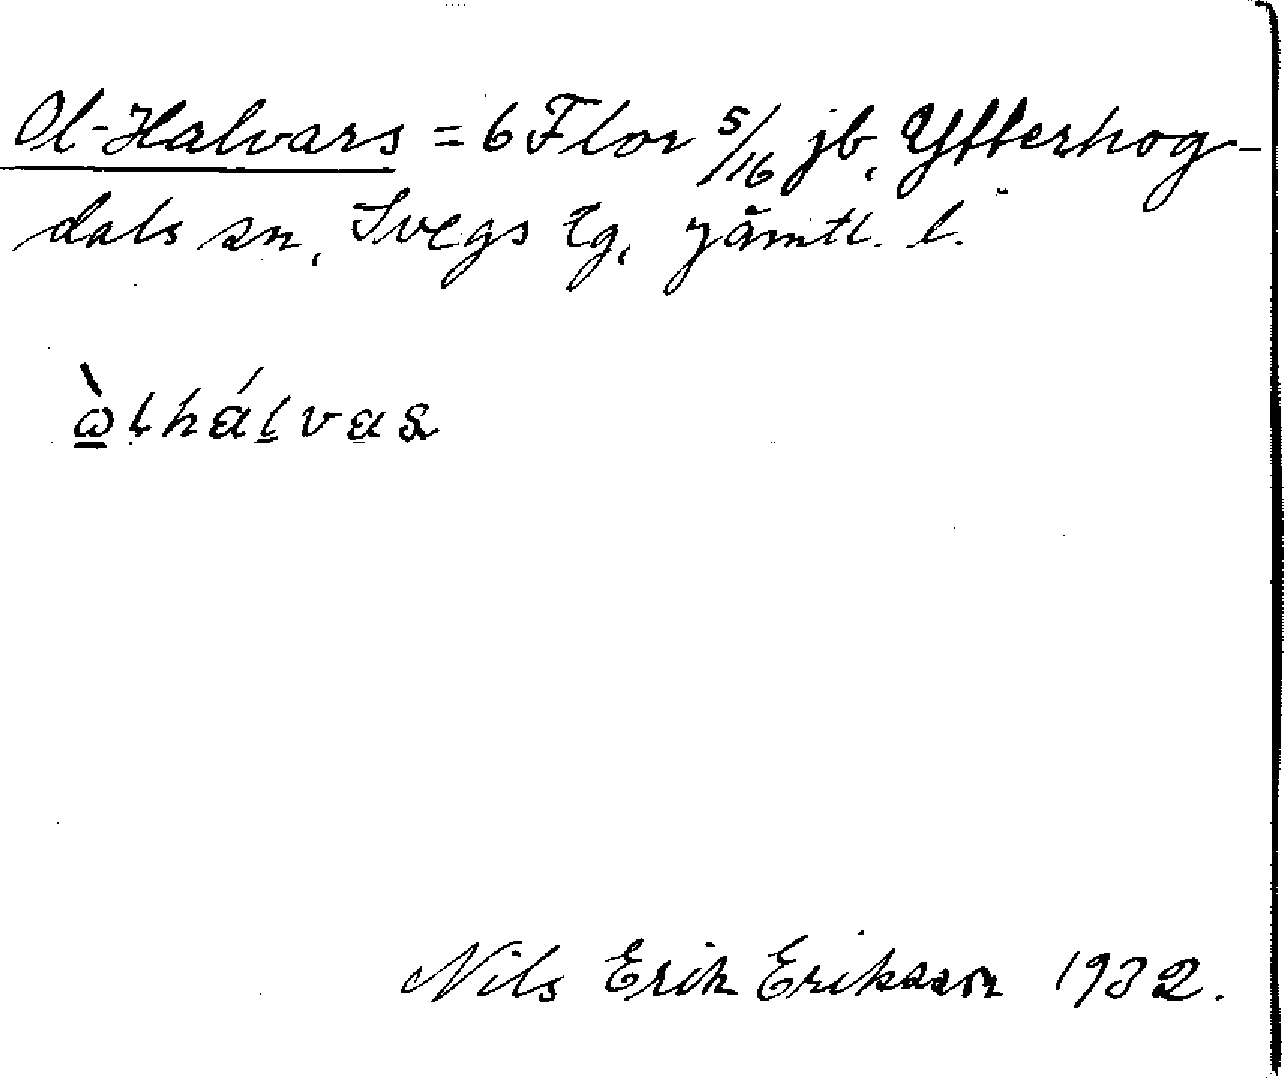 Ol-Halvars = 6 Flor 5/16 jb, Ytterhog-
dals sn, Svegs tg, Jämtl. l.
ὼ̱lhálvas
Nils Erik Eriksson 1932.